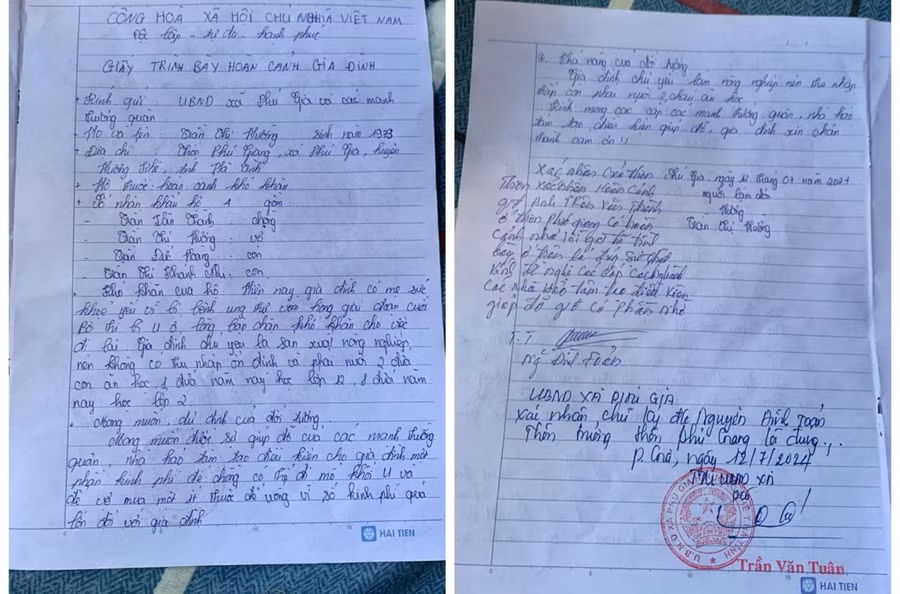 CỘNG HOÀ XÃ HỘI CHỦ NGHĨA VIỆT NAM
Độc lập - tự do - hạnh phúc
GIẤY TRÌNH BÀY HOÀN CẢNH GIA ĐÌNH
Kính gửi: UBND xã Phú Gia và các mạnh
thường quân
Họ và tên: Trần Thị Thường sinh năm 1973
Địa chỉ: Thôn Phú Giang, xã Phú Gia, huyện
Hương Khê, tỉnh Hà Tĩnh
+ Hộ thuộc: hoàn cảnh khó khăn
+ Số nhân khẩu hộ 4 gồm
- Trần Thành: chồng
- Trần Thị Thường: vợ
- Trần Đức: con
- Trần Thị Khánh: con
Khó khăn của hộ Hiện nay, gia đình có mẹ sức
khoẻ yếu vì bị bệnh ung thư vòm họng giai đoạn cuối
Bố thì bị U ở lòng bàn chân khó khăn cho việc
đi lại Gia đình chủ yếu là sản xuất nông nghiệp,
nên không có thu nhập ổn định và phải nuôi 2 đứa
con ăn học, 1 đứa năm nay học lớp 12, 1 đứa năm
nay học lớp 2
Mong muốn, dự định của đối tượng
Mong muốn được sự giúp đỡ của các mạnh thường
quân, nhà hảo tâm tạo điều kiện cho gia đình một
phần kinh phí để chồng có thể đi mổ khối U và
để vợ mua một ít thuốc để uống vì số kinh phí quá
lớn đối với gia đình
HẢI TIẾN
Khả năng của đối tượng
Gia đình chủ yếu làm nông nghiệp nên thu nhập
thấp còn phải nuôi 2 cháu ăn học
Kính mong các cấp các mạnh thường quân, nhà hảo
tâm tạo điều kiện giúp đỡ, gia đình xin chân
thành cảm ơn!!
Xác nhận của thôn Phú Gia, ngày 12 tháng 07 năm 2024
Thôn xác nhận Hoàn Cảnh người làm đơn
gđ Anh Trần Thành Thường
ở thôn Phú Giang Có hoàn Trần Thị Thường
Cảnh như lời
là đúng sự thật
Kính đề nghị Các Cấp
Các nhà Hảo tâm tạo điều kiện
giúp đỡ gđ
T.T
Ng Đình Toán
UBND XÃ PHÚ GIA
Xác nhận chữ ký Nguyễn Đình Toán
Thôn trưởng thôn Phú Giang là đúng
P. Gia, ngày 12/7/2024
TM UBND XÃ
PCT
Trần Văn Tuân
HẢI TIẾN